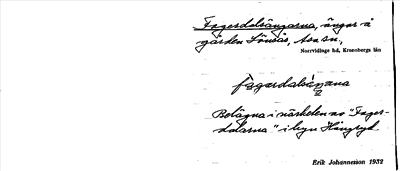 Fagerdalsängarna, ängar å
gården Lönsås, Asa sn.,
Norrvidinge hd, Kronobergs län
fagərdalsáŋana
Belägna i närheten av "Fager-
dalarna" i byn Hängsryd.
Erik Johannesson 1932